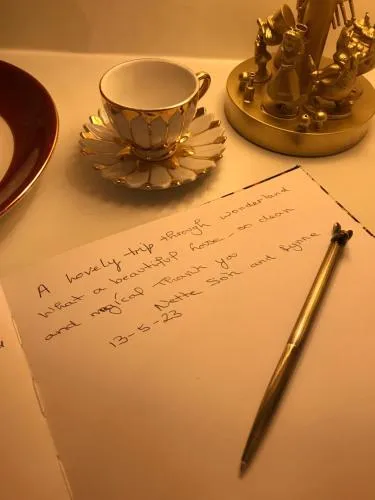 A lovely trip through wonderland
What a beautiful home - so clean
and magical Thank you
Nette Sofi and Lynne
13-5-23